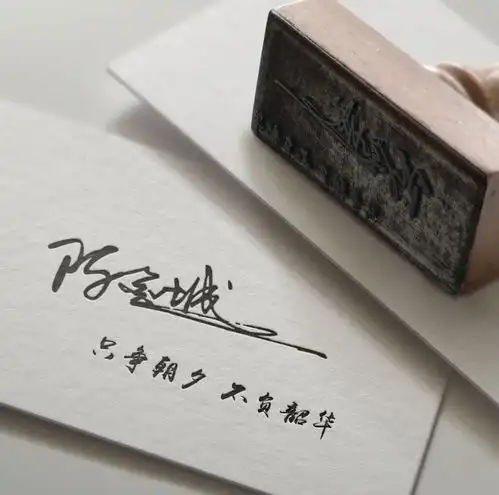 陈金城
只争朝夕 不负韶华